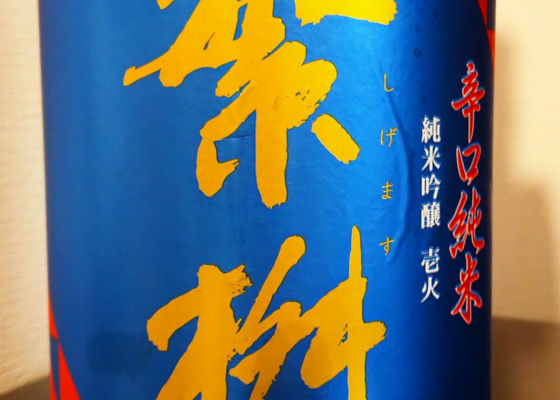 辛口純米
純米吟醸 壱火
しげます
繁桝